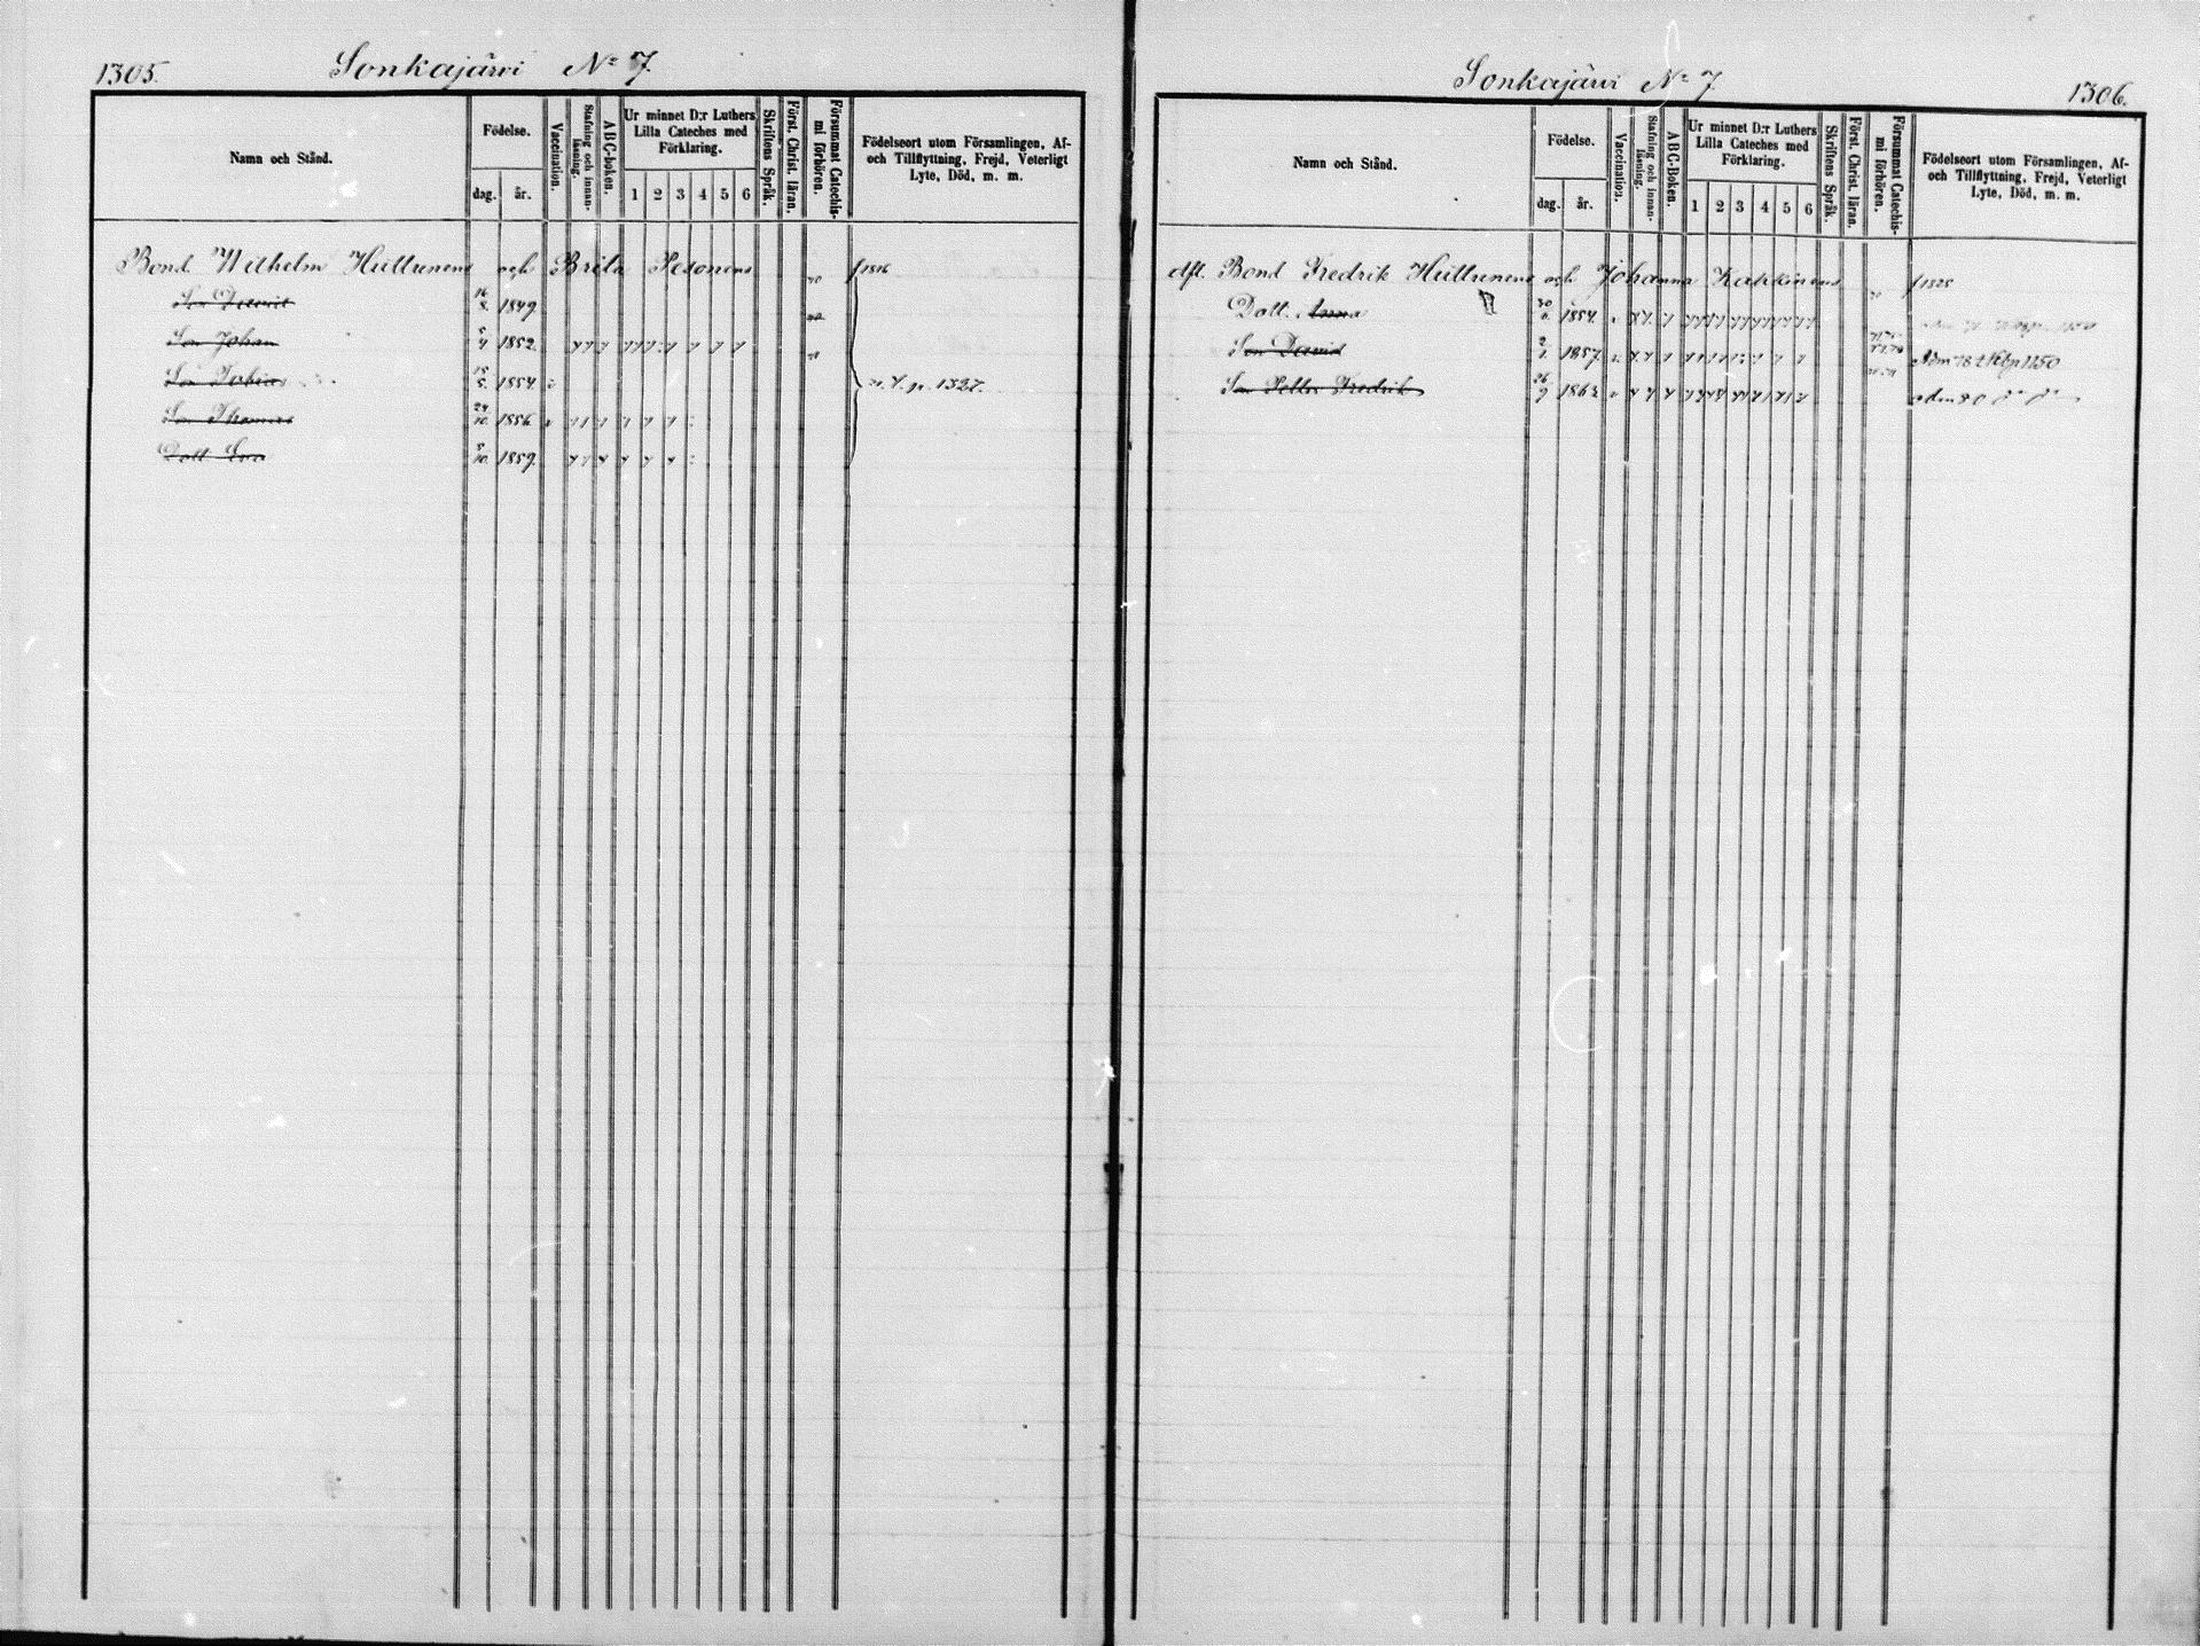 1305.
Sonkajärvi № 7.
Namn och Stånd.
Födelse.
dag.
år.
Vaccination.
Stafning och innanläsning.
ABC-boken.
Ur minnet D:r Luthers Lilla Cateches med Förklaring.
1 2 3 4 5 6
Skriftens Språk.
Först. Christ. läran.
Försummat Catechismi förhören.
Födelseort utom Församlingen, Af-
och Tillflyttning, Frejd, Veterligt
Lyte, Död, m. m.
Bond. Wilhelm Huttunens och Brita Pesonens
16/8 1849
Son Johan 1852
1854
Son Thomas 24/10 1856
Dott Eva 1859
1327.
Sonkajärvi № 7
1306.
Namn och Stånd.
Födelse.
dag.
år.
Vaccination.
Stafning och innanläsning.
ABC-Boken.
Ur minnet D:r Luthers Lilla Cateches med Förklaring.
1 2 3 4 5 6
Skriftens Språk.
Först. Christ. läran.
Försummat Catechismi förhören.
Födelseort utom Församlingen, Af-
och Tillflyttning, Frejd, Veterligt
Lyte, Död, m. m.
Bond Fredrik Huttunens och Johanna
Dott. Anna 1854
Son David 1857
Son Petter Fredrik 26/9 1863